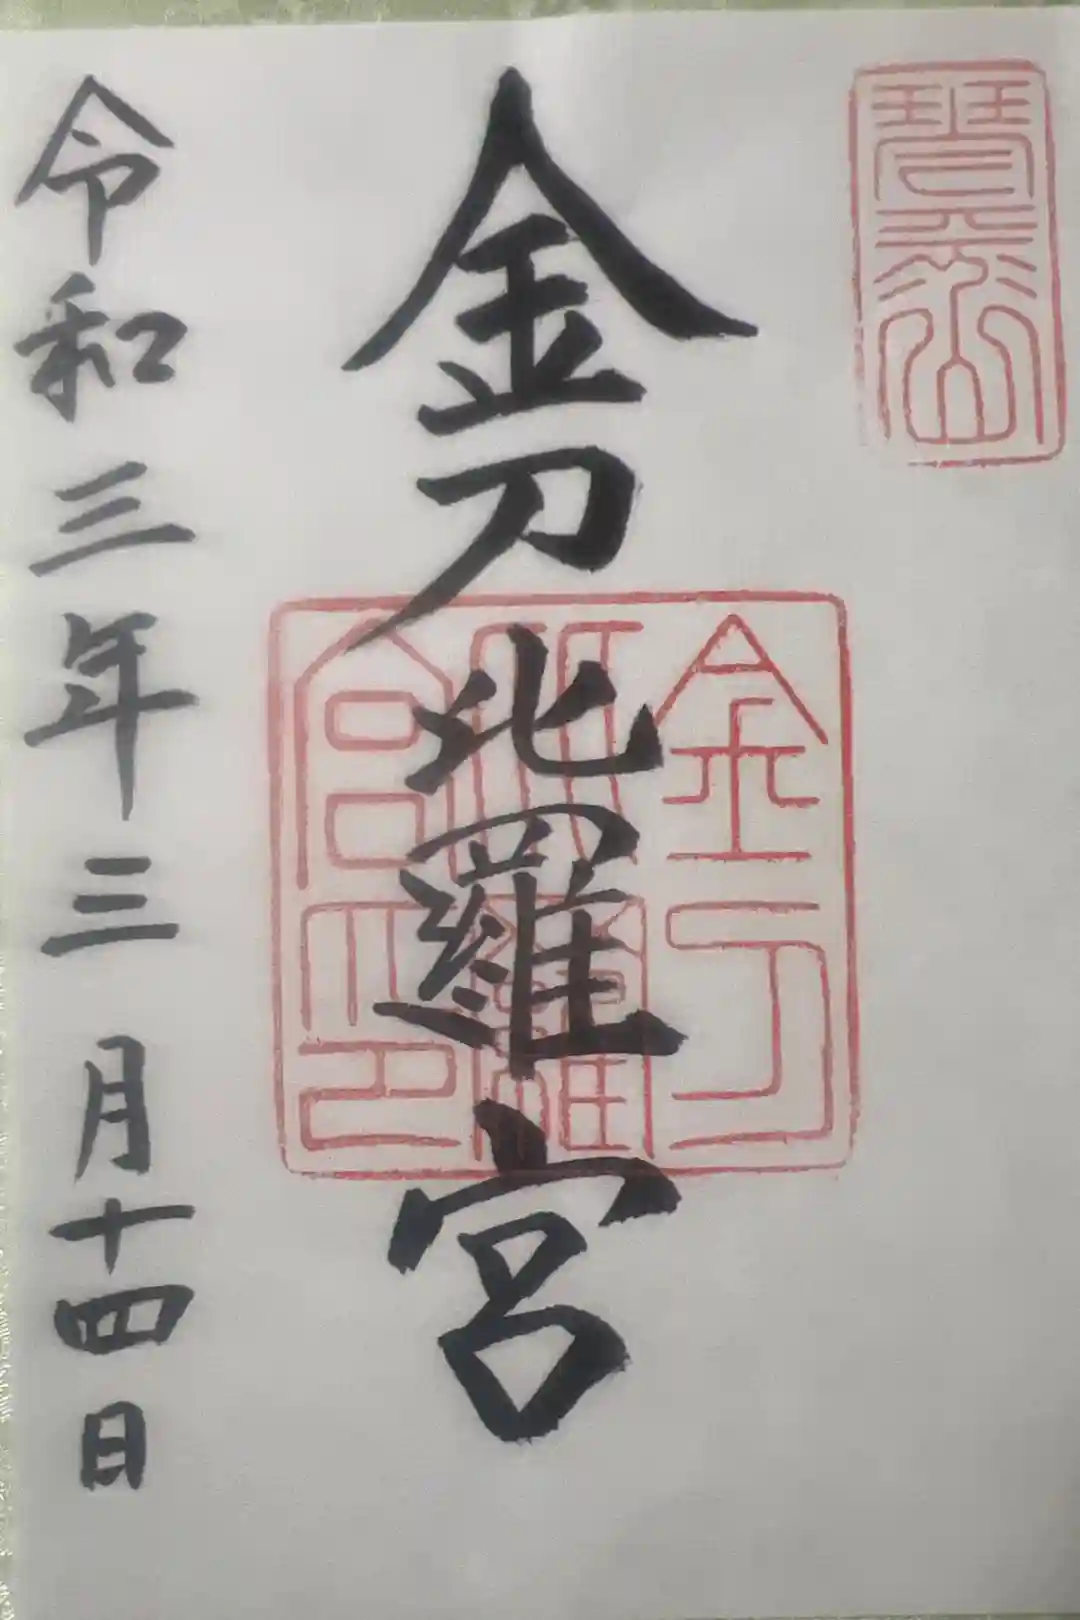 琴平山
金刀比羅宮
金刀
比羅
宮印
令和三年三月十四日